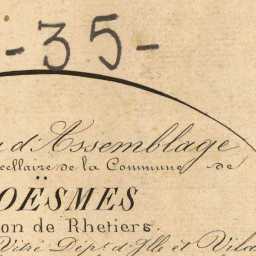 -35-
d'Assemblage
cellaire de la Commune de
OËSMES
on de Rhetiers
Vitré Dépt d'Ille et Vila